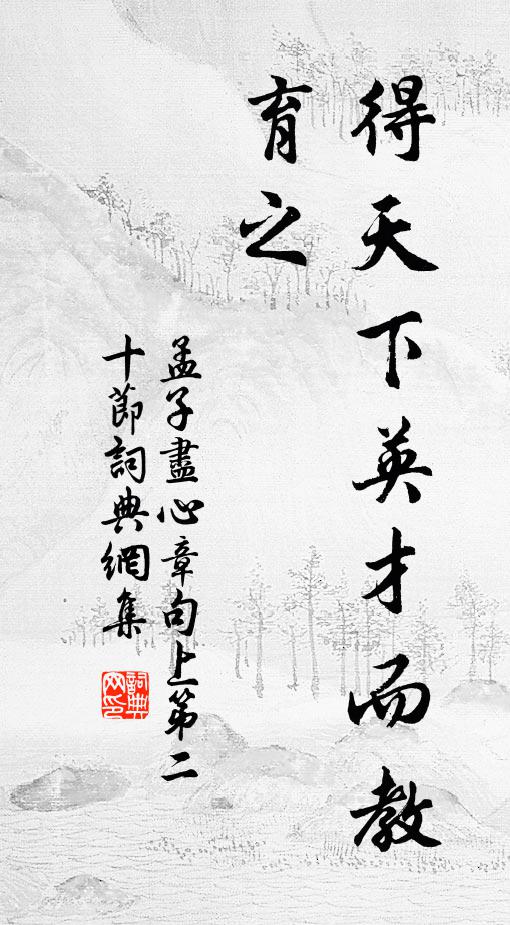 得天下英才而教
育之
孟子盡心章句上第二
十節詞典網集
詞典
网印